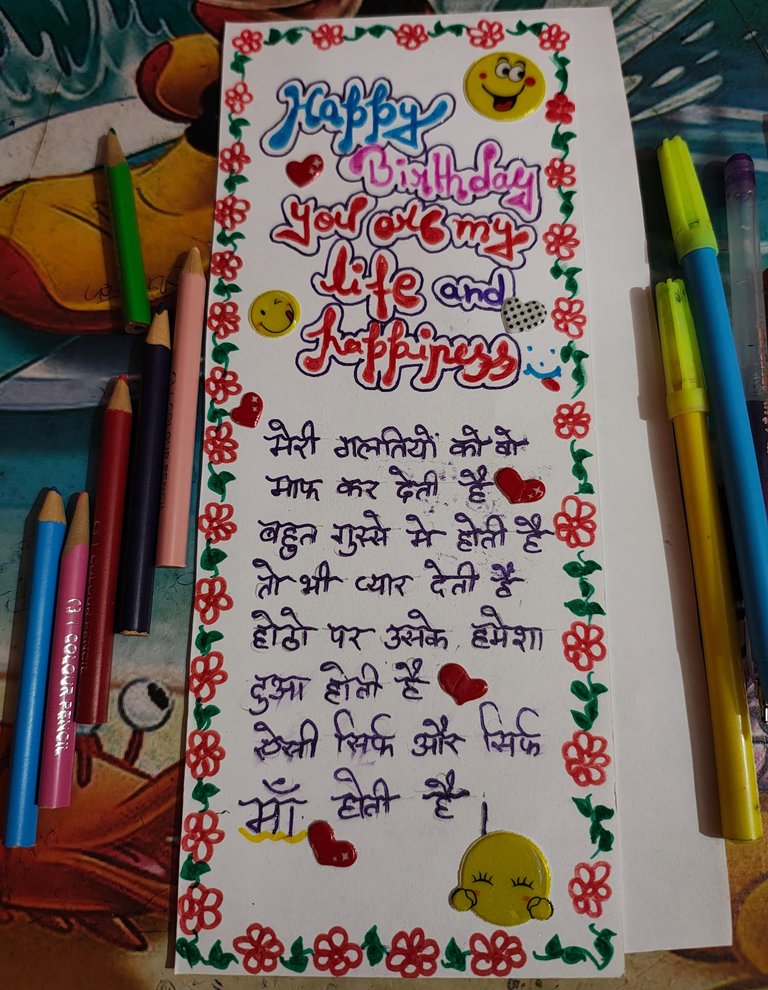 Happy
Birthday
you are my
life and
happiness
मेरी गलतियों को वो
माफ कर देती है
बहुत गुस्से मे होती है
तो भी प्यार देती है
होठो पर उसके हमेशा
दुआ होती है
ऐसी सिर्फ और सिर्फ
माँ होती है।
COLOUR PENCIL
COLOUR PENCIL